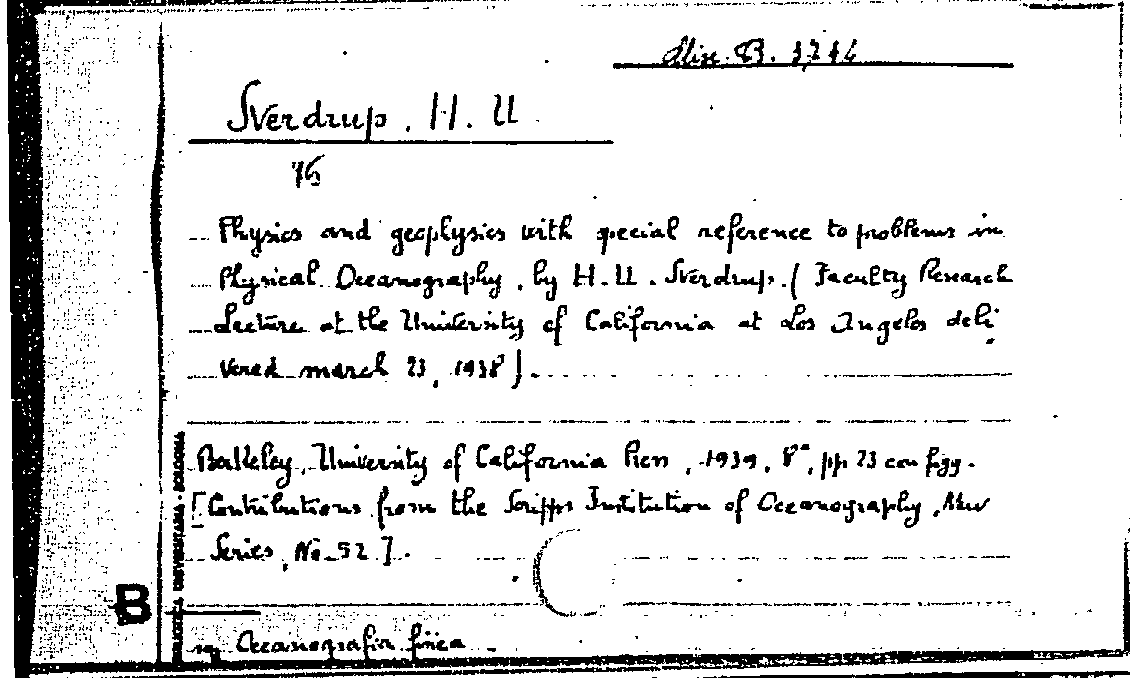 Misc. B. 3744
Sverdrup, H. U
76
Physics and geophysics with special reference to problems in
Physical Oceanography, by H. U. Sverdrup. ( Faculty Research
Lecture at the University of California at Los Angelos deli
vered march 23, 1938 ).
Berkeley, University of California Press, 1939, 8°, pp 23 con figg.
[Contributions from the Scripps Institution of Oceanography, New
Series, No 92 ].
BIBLIOTECA UNIVERSITARIA - BOLOGNA
B
Oceanografia fisica